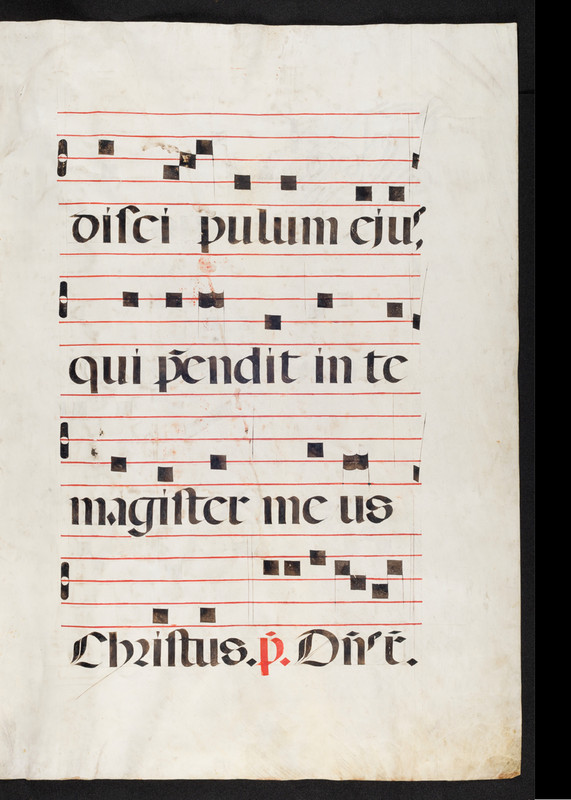 diſci pulum ejuſ,
qui p̄endit in te
magiſter me us
Chriſtus. p̄. Dn̄ˢ r̄.